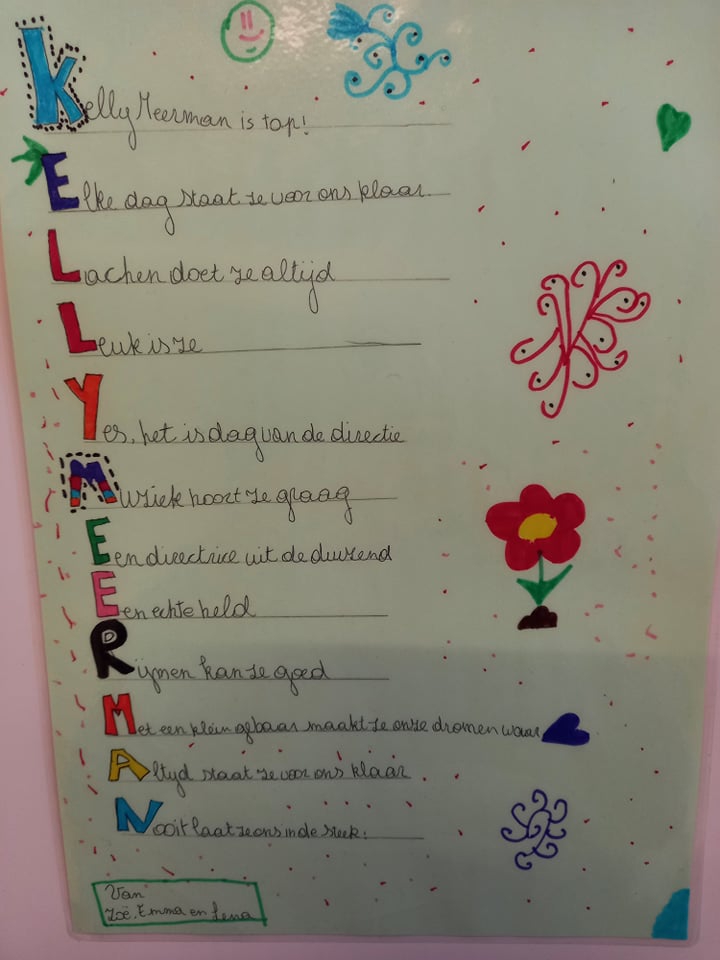 Kelly Meerman is top!
Elke dag staat ze voor ons klaar.
Lachen doet ze altijd
Leuk is ze
Yes, het is dag van de directie
Muziek hoort ze graag
Een directrice uit de duizend
Een echte held
Rijmen kan ze goed
Met een klein gebaar maakt ze onze dromen waar
Altyd staat ze voor ons klaar
Nooit laat ze ons in de steek.
Van
Zoë, Emma en Lena